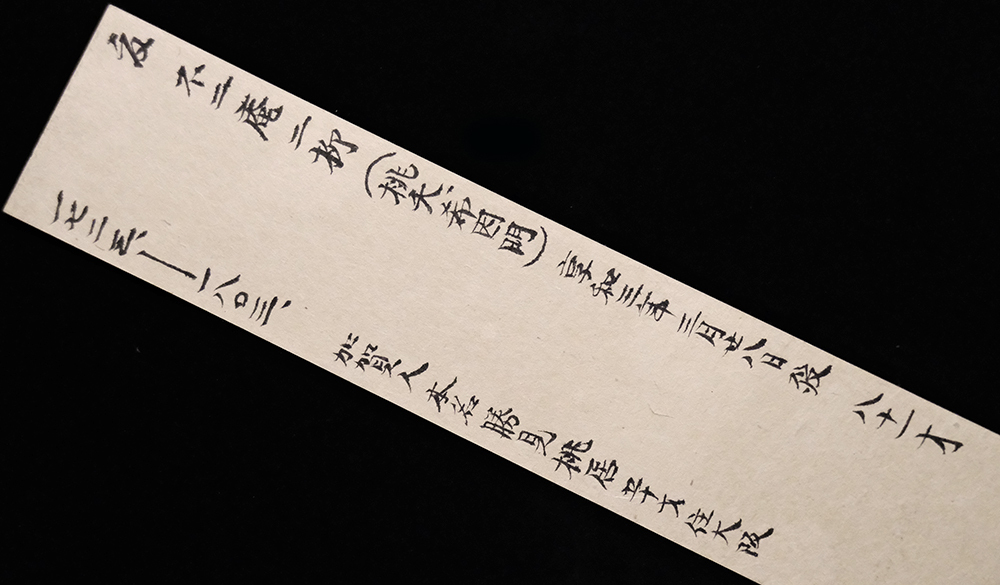 不二庵二柳(桃夭、希因門)享和三年三月廿八日歿 八十一才
一七二三、―一八〇三、 加賀人本名勝見桃居五十才住大阪